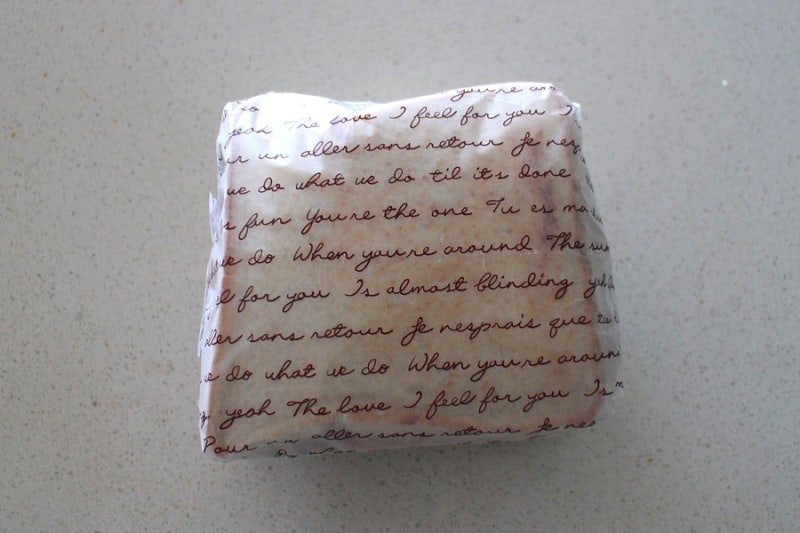 you're
yeah The love I feel for you
un aller sans retour Je
we do what we do til it's done
fun You're the one Tu es
we do When you're around The
for you Is almost blinding
sans retour Je nesprais que tu
do what we do When you're aroun
yeah The love I feel for you Is
Pour un aller sans retour Je nes